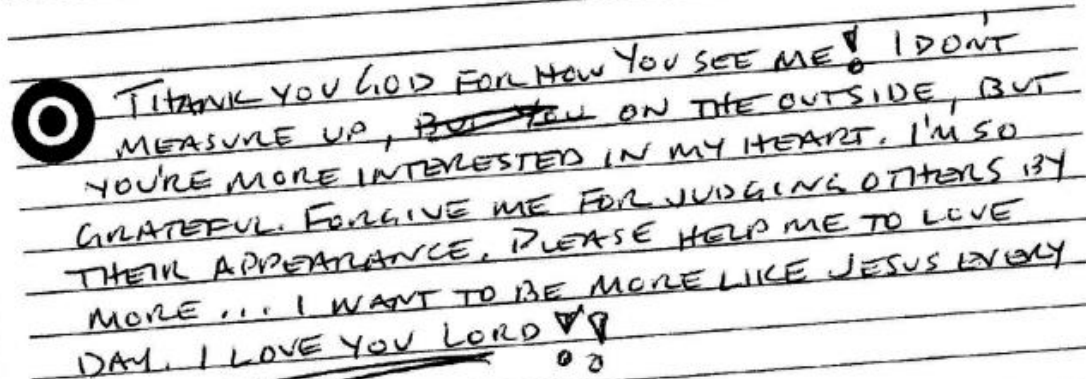 THANK YOU GOD FOR HOW YOU SEE ME! I DON'T
MEASURE UP, BUT YOU ON THE OUTSIDE, BUT
YOU'RE MORE INTERESTED IN MY HEART. I'M SO
GRATEFUL. FORGIVE ME FOR JUDGING OTHERS BY
THEIR APPEARANCE. PLEASE HELP ME TO LOVE
MORE... I WANT TO BE MORE LIKE JESUS EVERY
DAY. I LOVE YOU LORD!!